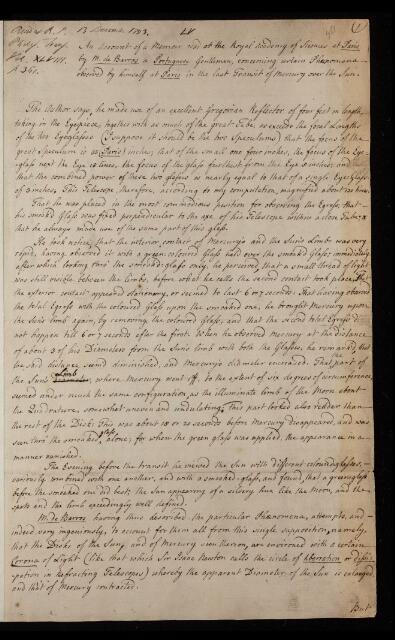 Read at R. S. 13 December 1753. LV
Phil. Trans.
Vol. XLVIII.
p. 361.
An Account of a Memoir read at the Royal Academy of Sciences at Paris
by M. de Barros a Portuguese Gentleman, concerning certain Phænomena
observed by himself at Paris in the last Transit of Mercury over the Sun.
The Author says, he made use of an excellent Gregorian Reflector of four feet in length,
taking in the Eyepiece, together with so much of the great Tube, as exceeds the focal Lengths
of the two Eyeglasses (I suppose it should be the two Speculums) that the focus of the
great Speculum is Paris inches; that of the small one four inches, the focus of the Eye
glass next the Eye 18 lines, the focus of the glass farthest from the Eye 5 inches, and
that the combined power of these two glasses is nearly equal to that of a single Eye Glass
of 3 inches. This Telescope therefore, according to my computation, magnified about times.
That he was placed in the most commodious position for observing the Egress; that
his smoked Glass was fixed perpendicular to the axe of his Telescope within a close Tube, &
that he always made use of the same part of this glass.
He took notice, that the interior contact of Mercury's and the Sun's Limb was very
rapid, having observed it with a green coloured Glass held over the smoked Glass, immediately
after which looking thro' the smoked glass only, he perceived, that a small thread of light
was still visible between the Limbs, before what he calls the second contact took place; that
the exterior contact appeared stationary, or seemed to last 6 or 7 seconds. That having observed
the total Egress with the coloured Glass upon the smoaked one, he brought Mercury upon
the Sun's Limb again, by removing the coloured Glass, and that the second total Egress did
not happen till 6 or 7 seconds after the first. When he observed mercury at the distance
of about 3 of his Diameters from the Sun's limb with both the Glasses, he remarked that
the said distance seemed diminished, and Mercury's diameter increased. That part of
the Sun's Limb, where Mercury went off, to the extent of six degrees of circumference,
seemed under much the same configuration as the illuminate limb of the Moon about
the Quadrature, somewhat uneven and undulating; This part looked also redder than
the rest of the Disk: This was about 18 or 20 seconds before Mercury disappeared, and was
seen thro' the smoaked glass alone; for when the green glass was applied, the appearance in a
manner vanished.
The Evening before the transit he viewed the Sun with different coloured glasses,
variously combined with one another, and with a smoked glass, and found, that a green glass
before the smoked one did best; the Sun appearing of a silvery hue like the Moon, and the
spots and the limb exceedingly well defined.
M. de Barros having thus described the particular Phænomena, attempts, and
indeed very ingeniously, to account for them all from this single supposition, namely,
that the Disks of the Sun, and of Mercury seen thereon, are environed with a certain
Corona of Light (like that which Sir Isaac Newton calls the circle of aberration or dissi-
pation in Refracting Telescopes) whereby the apparent Diameter of the Sun is enlarged,
and that of Mercury contracted.
But